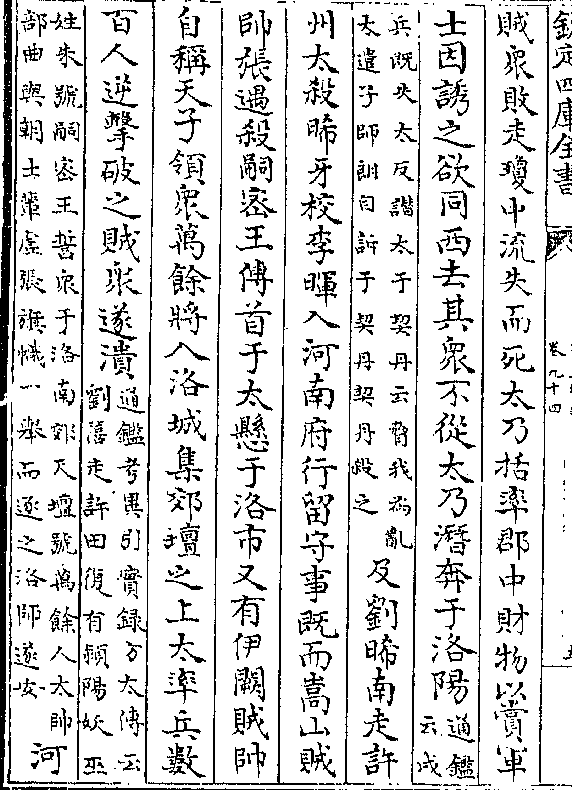 欽定四庫全書
卷九十四
賊衆敗走瓊中流矢而死太乃括率郡中財物以賞軍
士因誘之欲同西去其衆不從太乃潛奔于洛陽通鑑云戍
兵既失太反譖太于契丹云脅我為亂太遣子師朗自訴于契丹契丹殺之及劉晞南走許
州太殺晞牙校李暉入河南府行留守事既而嵩山賊
帥張遇殺嗣密王傳首于太懸于洛市又有伊闕賊帥
自稱天子領衆萬餘將入洛城集郊壇之上太率兵數
百人逆擊破之賊衆遂潰通鑑考異引實録方太傳云劉禧走許田復有潁陽妖巫
姓朱號嗣密王誓衆于洛南郊天壇號萬餘人太帥部曲與朝士輩虛張旗幟一舉而逐之洛師遂安河